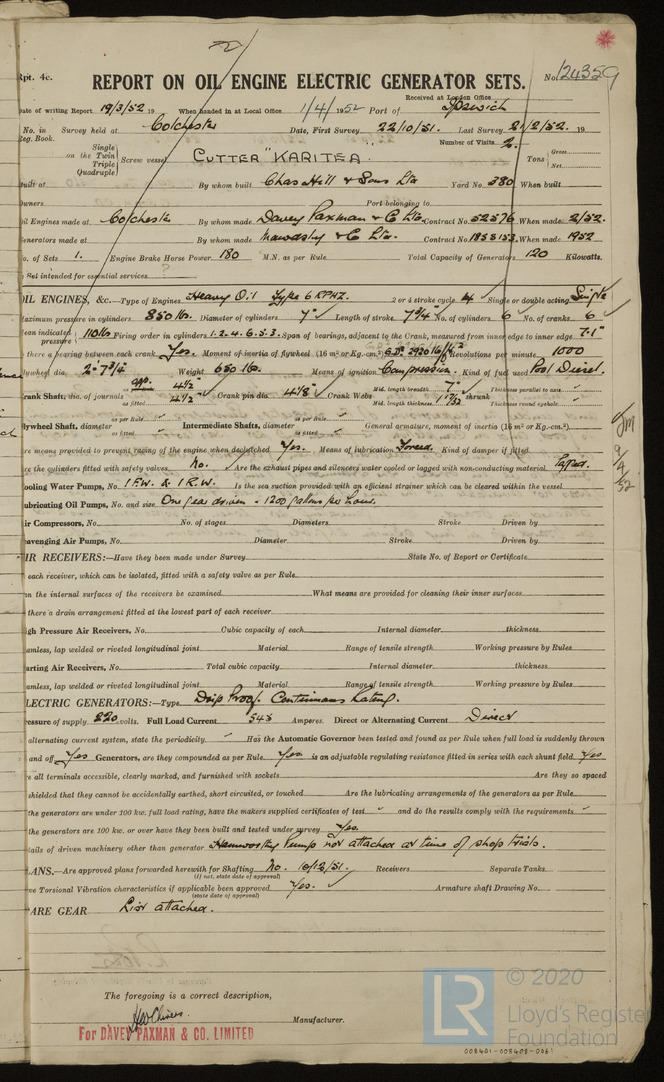 Rpt. 4c.
REPORT ON OIL ENGINE ELECTRIC GENERATOR SETS. No. 124359
Received at London Office
Date of writing Report 19/3/52 19 When handed in at Local Office 1/4/1952 Port of Ipswich
No. in Survey held at Colchester Date, First Survey 22/10/51. Last Survey 21/2/52. 19
Reg. Book. Number of Visits 2.
Single on the Twin Triple Quadruple Screw vessel CUTTER "KARITEA" Tons Gross Net
Built at By whom built Chas Hill & Sons Ltd Yard No. 380 When built
Owners Port belonging to
Oil Engines made at Colchester By whom made Davey Paxman & Co Ltd. Contract No. 52576 When made 2/52.
Generators made at By whom made Mawdsley & Co Ltd. Contract No. 1958153 When made 1952
No. of Sets 1. Engine Brake Horse Power 180 M.N. as per Rule Total Capacity of Generators 120 Kilowatts.
Is Set intended for essential services ?
OIL ENGINES, &c.—Type of Engines Heavy Oil Type 6 RPHZ. 2 or 4 stroke cycle 4 Single or double acting Single
Maximum pressure in cylinders 850 lbs. Diameter of cylinders 7" Length of stroke 7 3/4" No. of cylinders 6 No. of cranks 6
Mean indicated pressure 110 lbs Firing order in cylinders 1.2.4.6.5.3. Span of bearings, adjacent to the Crank, measured from inner edge to inner edge 7.1"
Is there a bearing between each crank Yes. Moment of inertia of flywheel (16 m² or Kg.-cm.²) Revolutions per minute 1000
Flywheel dia. 2'-7 3/4" Weight 650 lbs. Means of ignition Compression Kind of fuel used Pool Diesel.
Crank Shaft, dia. of journals app. 4 1/2" as fitted 4 1/2" Crank pin dia. 4 1/8" Crank Webs Mid. length breadth 7" Mid. length thickness 1 17/32 shrunk Thickness parallel to axis Thickness round eyehole
Flywheel Shaft, diameter as per Rule as fitted Intermediate Shafts, diameter as per Rule as fitted General armature, moment of inertia (16 m² or Kg.-cm.²)
Are means provided to prevent racing of the engine when declutched Yes. Means of lubrication Forced. Kind of damper if fitted
Are the cylinders fitted with safety valves No. Are the exhaust pipes and silencers water cooled or lagged with non-conducting material lagged.
Cooling Water Pumps, No. 1 F.W. & 1 R.W. Is the sea suction provided with an efficient strainer which can be cleared within the vessel
Lubricating Oil Pumps, No. and size One gear driven - 1200 gallons per hour.
Air Compressors, No. No. of stages Diameters Stroke Driven by
Scavenging Air Pumps, No. Diameter Stroke Driven by
AIR RECEIVERS:—Have they been made under Survey State No. of Report or Certificate
each receiver, which can be isolated, fitted with a safety valve as per Rule
on the internal surfaces of the receivers be examined What means are provided for cleaning their inner surfaces
there a drain arrangement fitted at the lowest part of each receiver
High Pressure Air Receivers, No. Cubic capacity of each Internal diameter thickness
Seamless, lap welded or riveted longitudinal joint Material Range of tensile strength Working pressure by Rules
Starting Air Receivers, No. Total cubic capacity Internal diameter thickness
Seamless, lap welded or riveted longitudinal joint Material Range of tensile strength Working pressure by Rules
ELECTRIC GENERATORS:—Type Drip Proof. Continuous Rating.
Pressure of supply 220 volts. Full Load Current 545 Amperes. Direct or Alternating Current Direct
alternating current system, state the periodicity Has the Automatic Governor been tested and found as per Rule when full load is suddenly thrown
and off Yes Generators, are they compounded as per Rule Yes is an adjustable regulating resistance fitted in series with each shunt field Yes
Are all terminals accessible, clearly marked, and furnished with sockets Are they so spaced
shielded that they cannot be accidentally earthed, short circuited, or touched Are the lubricating arrangements of the generators as per Rule
the generators are under 100 kw. full load rating, have the makers supplied certificates of test and do the results comply with the requirements
the generators are 100 kw. or over have they been built and tested under survey Yes.
Details of driven machinery other than generator Hamworthy Pump not attached at time of shop trials.
PLANS.—Are approved plans forwarded herewith for Shafting No. 10/12/51. Receivers Separate Tanks
(If not, state date of approval)
Have Torsional Vibration characteristics if applicable been approved Yes. Armature shaft Drawing No.
(state date of approval)
SPARE GEAR List attached.
The foregoing is a correct description,
Manufacturer.
For DAVEY PAXMAN & CO. LIMITED
JM
9/4/52
LR
© 2020
Lloyd's Register
Foundation
008401-008408-0061